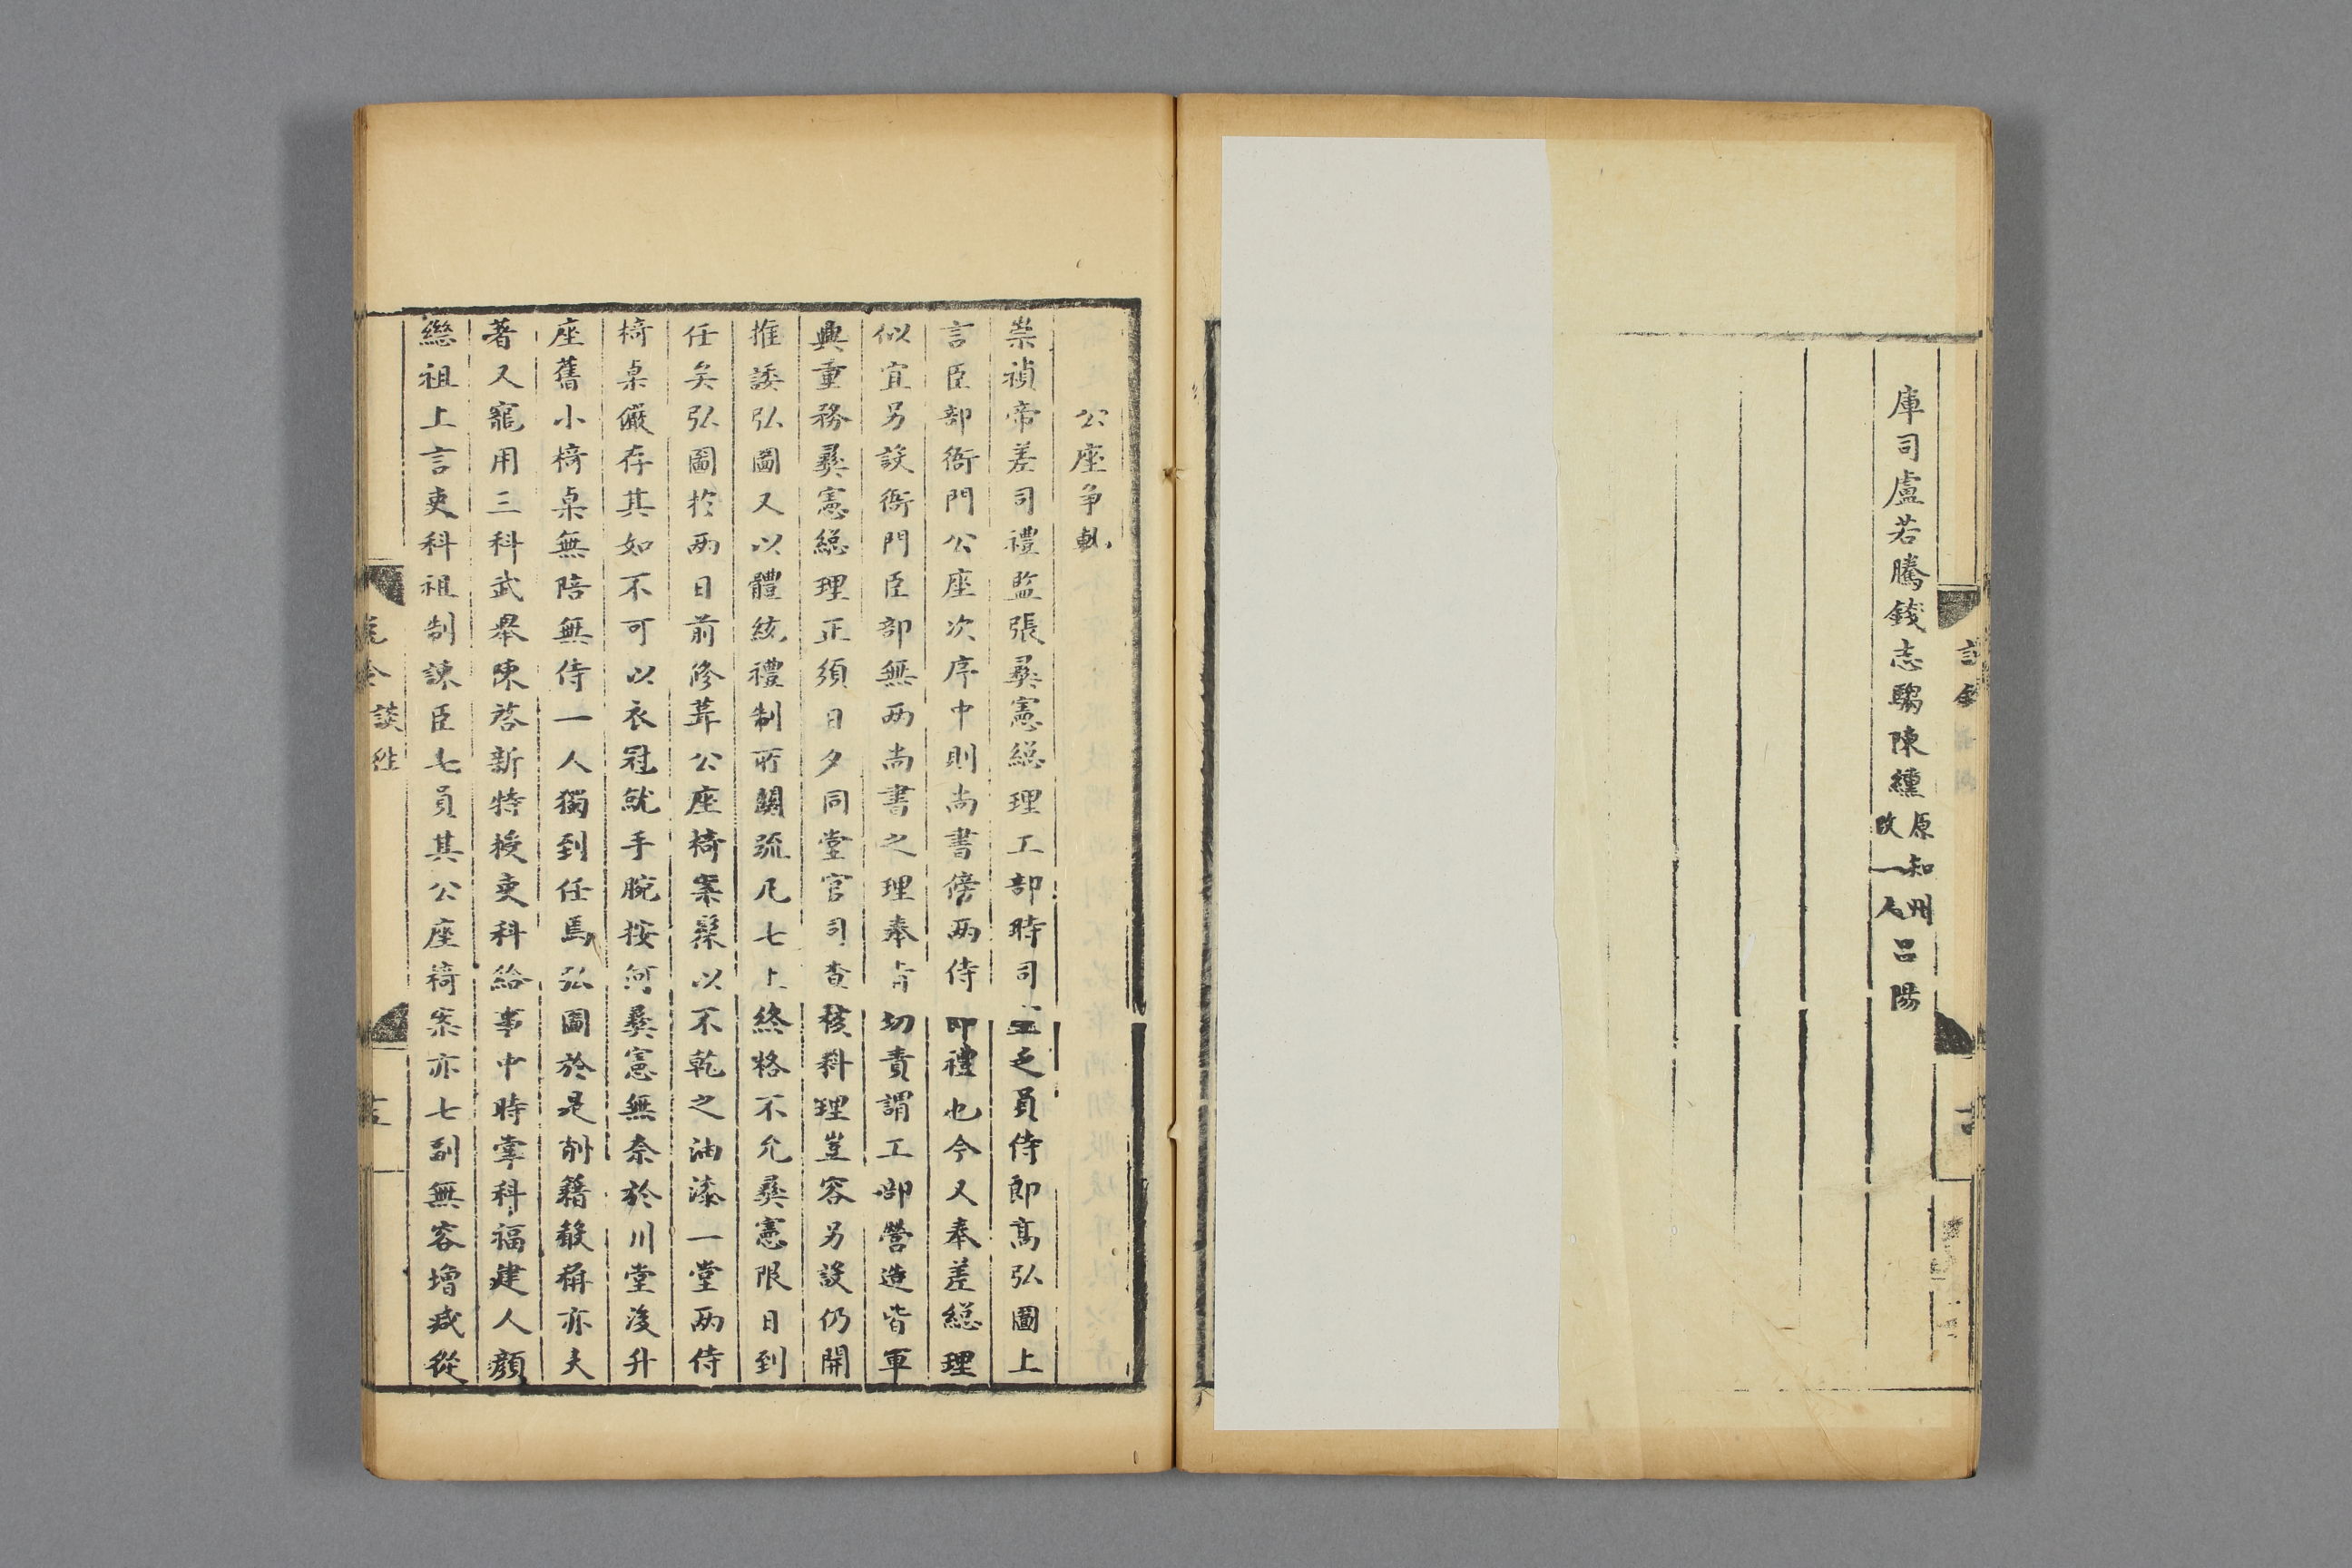 庫司盧若騰錢志騶陳纁原知州改一人呂陽
公座爭執
崇禎帝差司禮監張彝憲總理工部時司空乏員侍郎高弘圖上
言臣部衙門公座次序中則尚書傍兩侍郎禮也今又奉差總理
似宜另設衙門臣部無兩尚書之理奉旨切責謂工部營造皆軍
興重務彝憲總理正須日夕同堂官司查核料理豈容另設仍開
推諉弘圖又以體統禮制所關疏凡七上終格不允彝憲限日到
任矣弘圖於兩日前修葺公座椅案髹以不乾之油漆一堂兩侍
椅桌儼存其如不可以衣冠就手腕按何彝憲無奈於川堂後升
座舊小椅桌無陪無侍一人獨到任焉弘圖於是削籍敍稱亦夫
著又寵用三科武舉陳啓新特授吏科給事中時掌科福建人顏
繼祖上言吏科祖制諫臣七員其公座椅案亦七副無容增減從